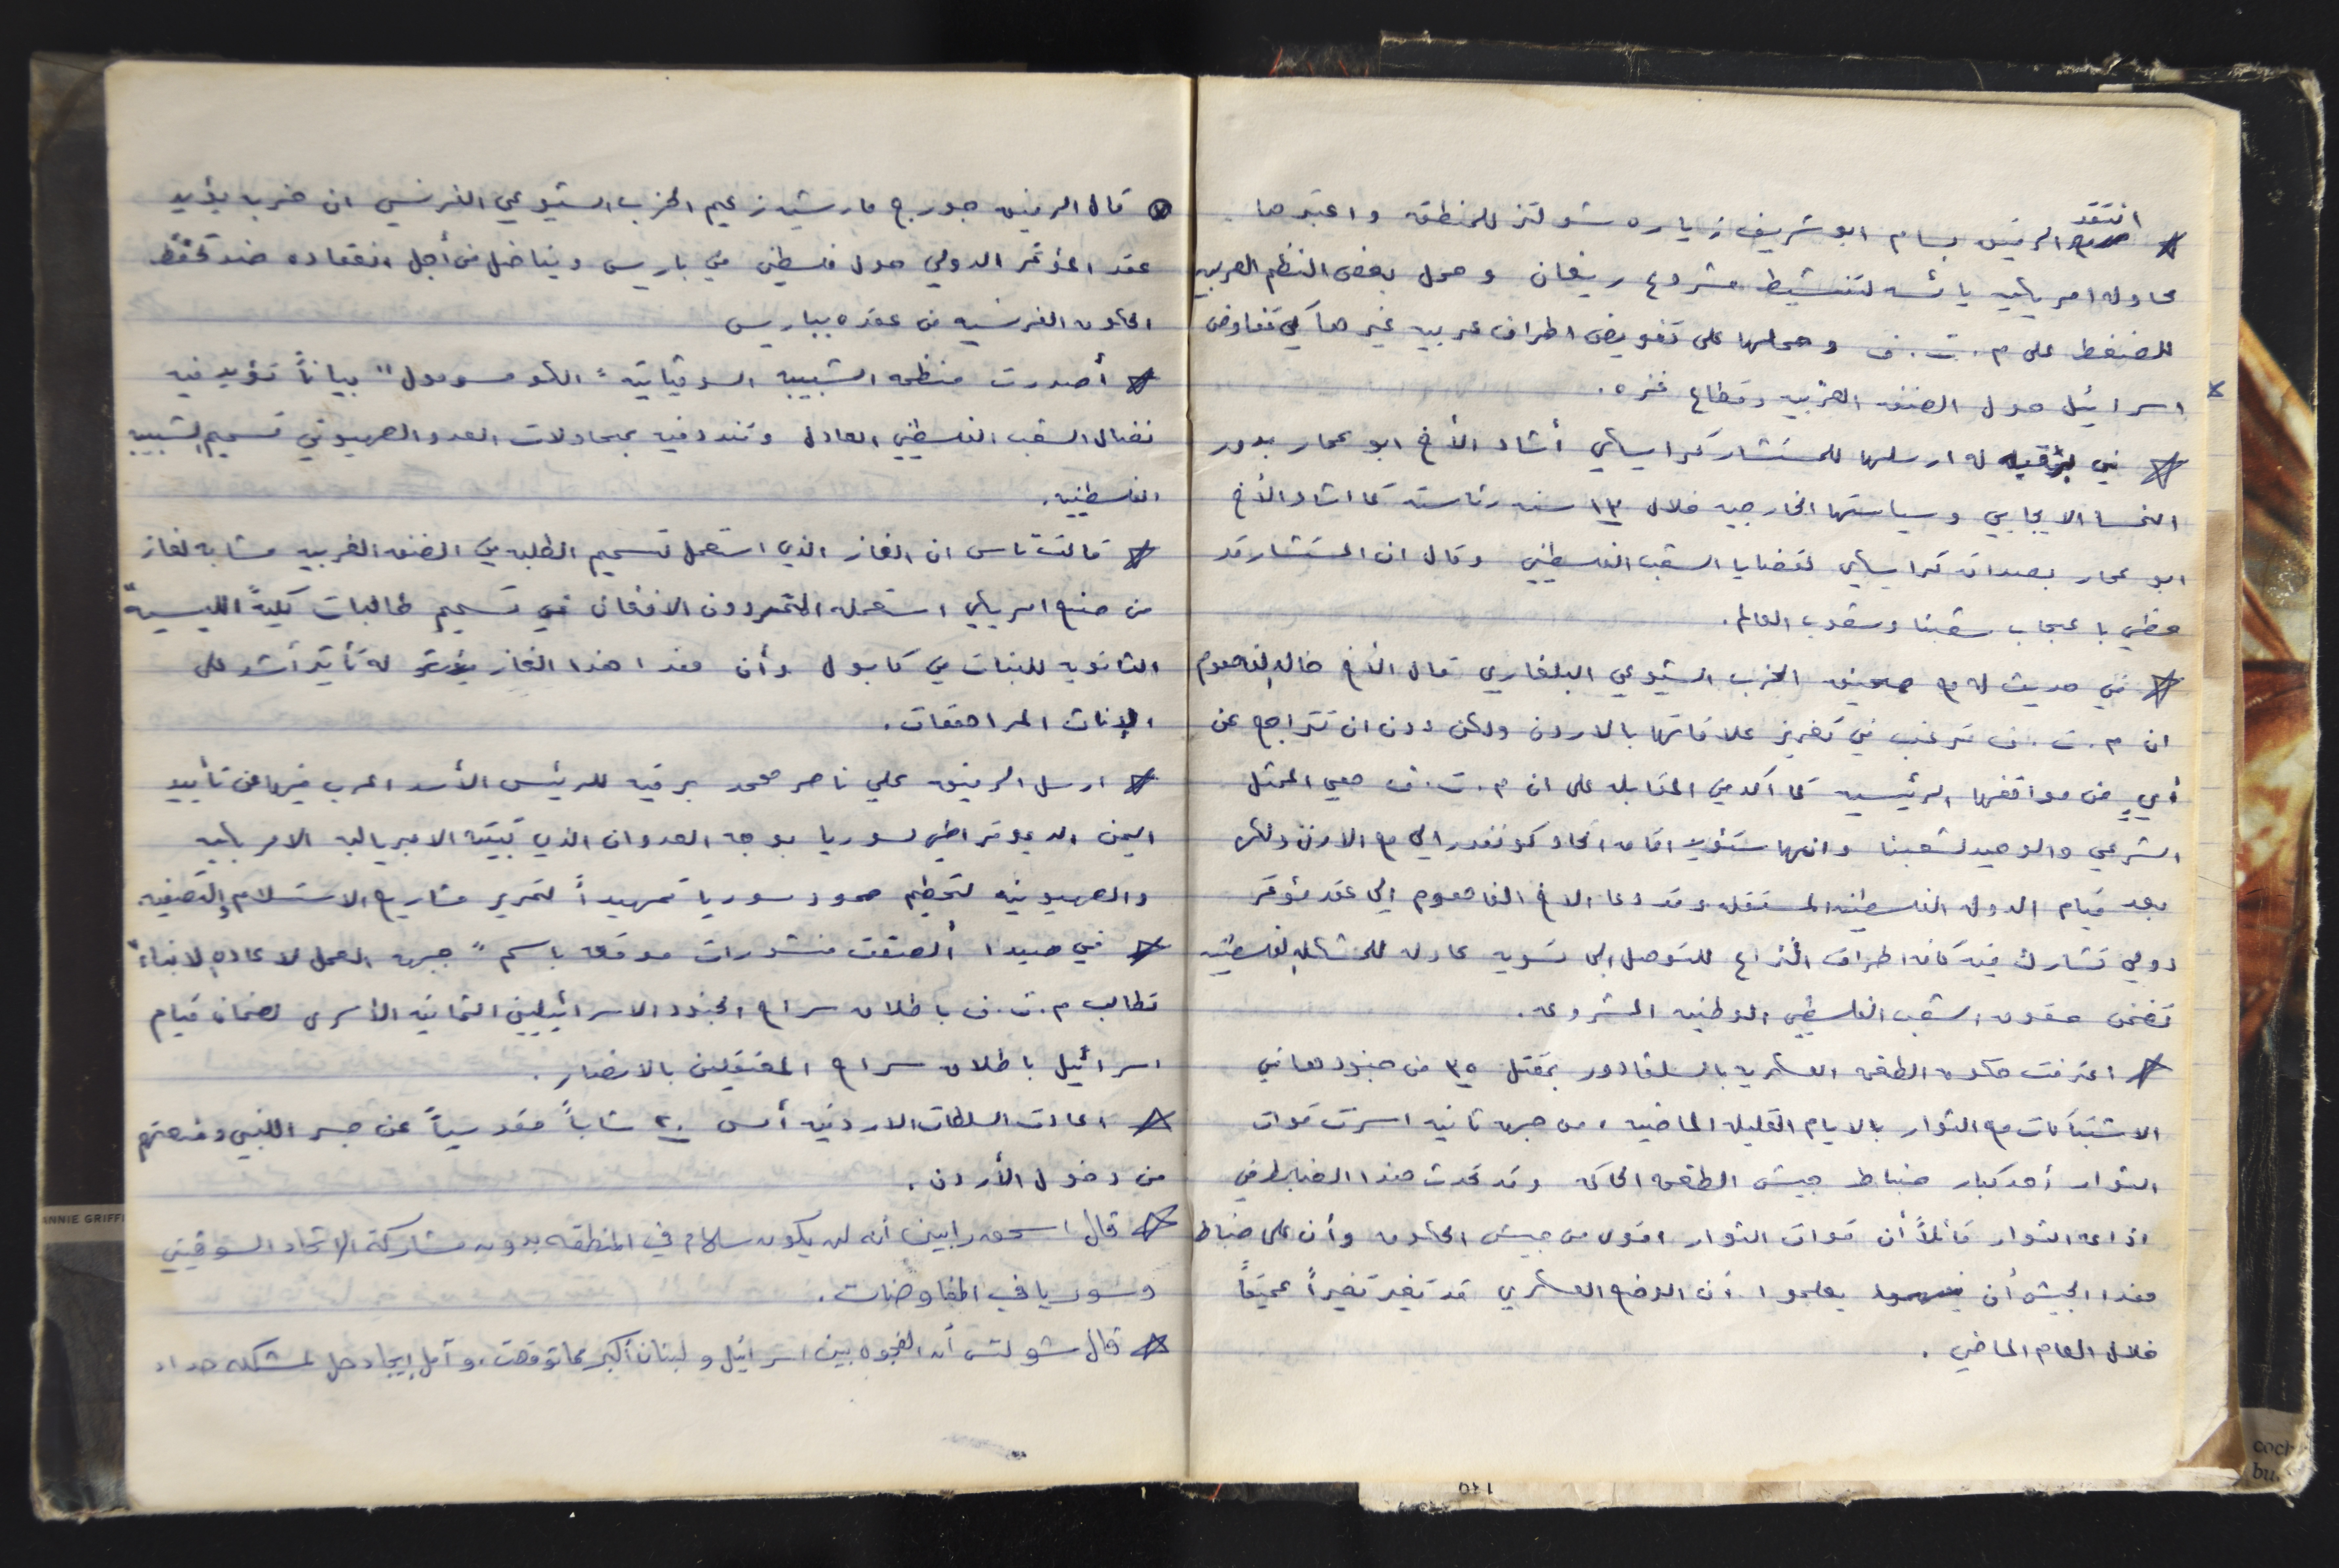 انتقد
الرفيق بسام ابو شريف زياره شولتز للمنطقه واعتبرها
محاوله امريكيه يائسه لتنشيط مشروع ريغان وحمل بعض النظم العربيه
للضغط على م . ت . ف وحملها على تفويض اطراف عربيه غيرها كي تتفاوض
اسرائيل حول الضفه الغربيه وقطاع غزه .
في برقيه له ارسلها للمستشار كرايسكي أشاد الأخ ابو عمار بدور
النمسا الايجابي وسياستها الخارجيه خلال ١٣ سنه رئاسته كما اشاد الأخ
ابو عمار بصداقة كرايسكي لقضايا الشعب الفلسطيني وقال ان المستشار قد
حظي باعجاب شعبنا وشعوب العالم .
في حديث له مع صحيفه الحزب الشيوعي البلغاري قال الأخ خالد الفاهوم
ان م . ت . ف ترغب في تعزيز علاقاتها بالاردن ولكن دون ان تتراجع عن
أيٍ من مواقفها الرئيسيه كما اكد في المقابله على ان م . ت . ف هي الممثل
الشرعي والوحيد لشعبنا وانها ستؤيد اقامة اتحاد كونفدرالي مع الاردن ولكن
بعد قيام الدوله الفلسطينيه المستقله وقد دعا الاخ الفاهوم الى عقد مؤتمر
دولي تشارك فيه كافه اطراف النزاع للتوصل الى تسويه عادله للمشكله الفلسطينيه
تضمن حقوق الشعب الفلسطيني الوطنيه المشروعه .
اعترفت حكومه الطغمه العسكريه بالسلفادور بمقتل ٣٥ من جنودها في
الاشتباكات مع الثوار بالايام القليله الماضيه ، من جهه ثانيه اسرت قوات
الثوار أحد كبار ضباط جيش الطغمه الحاكمه وقد تحدث هذا الضابط في
اذاعه الثوار قائلاً أن قوات الثوار اقوى من جيش الحكومه وأن على ضباط
هذا الجيش أن يعلموا أن الوضع العسكري قد تغير تغيراً عميقاً
خلال العام الماضي .
قال الرفيق جورج مارشيه زعيم الحزب الشيوعي الفرنسي ان حزبه يؤيد
عقد المؤتمر الدولي حول فلسطين في باريس ويناضل من أجل انعقاده ضد تحفّظ
الحكومه الفرنسيه من عقده بباريس
أصدرت منظمه الشبيبه السوفياتيه " الكومسومول " بياناً تؤيد فيه
نضال الشعب الفلسطيني العادل وتندد فيه بمحاولات العدو الصهيوني تسميم الشبيبه
الفلسطينيه .
قالت تاس ان الغاز الذي استعمل لتسميم الطلبه في الضفه الغربيه مشابه لغاز
من صنع امريكي استعمله المتمردون الافغان في تسميم طالبات كلية " الليسيه "
الثانويه للبنات في كابول وأن هذا الغاز له تأثير أشد على
الإناث المراهقات .
ارسل الرفيق علي ناصر محمد برقيه للرئيس الأسد اعرب فيها عن تأييد
اليمن الديموقراطي لسوريا بوجه العدوان الذي تبيته الامبرياليه الامريكيه
والصهيونيه لتحطيم صمود سوريا تمهيداً لتمرير مشاريع الاستسلام والتصفيه .
في صيدا ألصقت منشورات موقعه باسم " جبهه العمل لاعاده الابناء "
تطالب م . ت . ف باطلاق سراح الجنود الاسرائيليين الثمانيه الأسرى لضمان قيام
اسرائيل باطلاق سراح المعتقلين بالانصار .
اعادت السلطات الاردنيه أمس ٢٠ شاباً مقدسياً عن جسر اللنبي ومنعتهم
من دخول الأردن .
قال اسحق رابين أنه لن يكون سلام في المنطقه بدون مشاركة الاتحاد السوفيتي
وسوريا في المفاوضات .
قال شولتس أن الفجوه بين اسرائيل ولبنان أكبر مما توقعت ، وآمل إيجاد حل لمشكله حداد
ANNIE GRIFFI
coch
bu